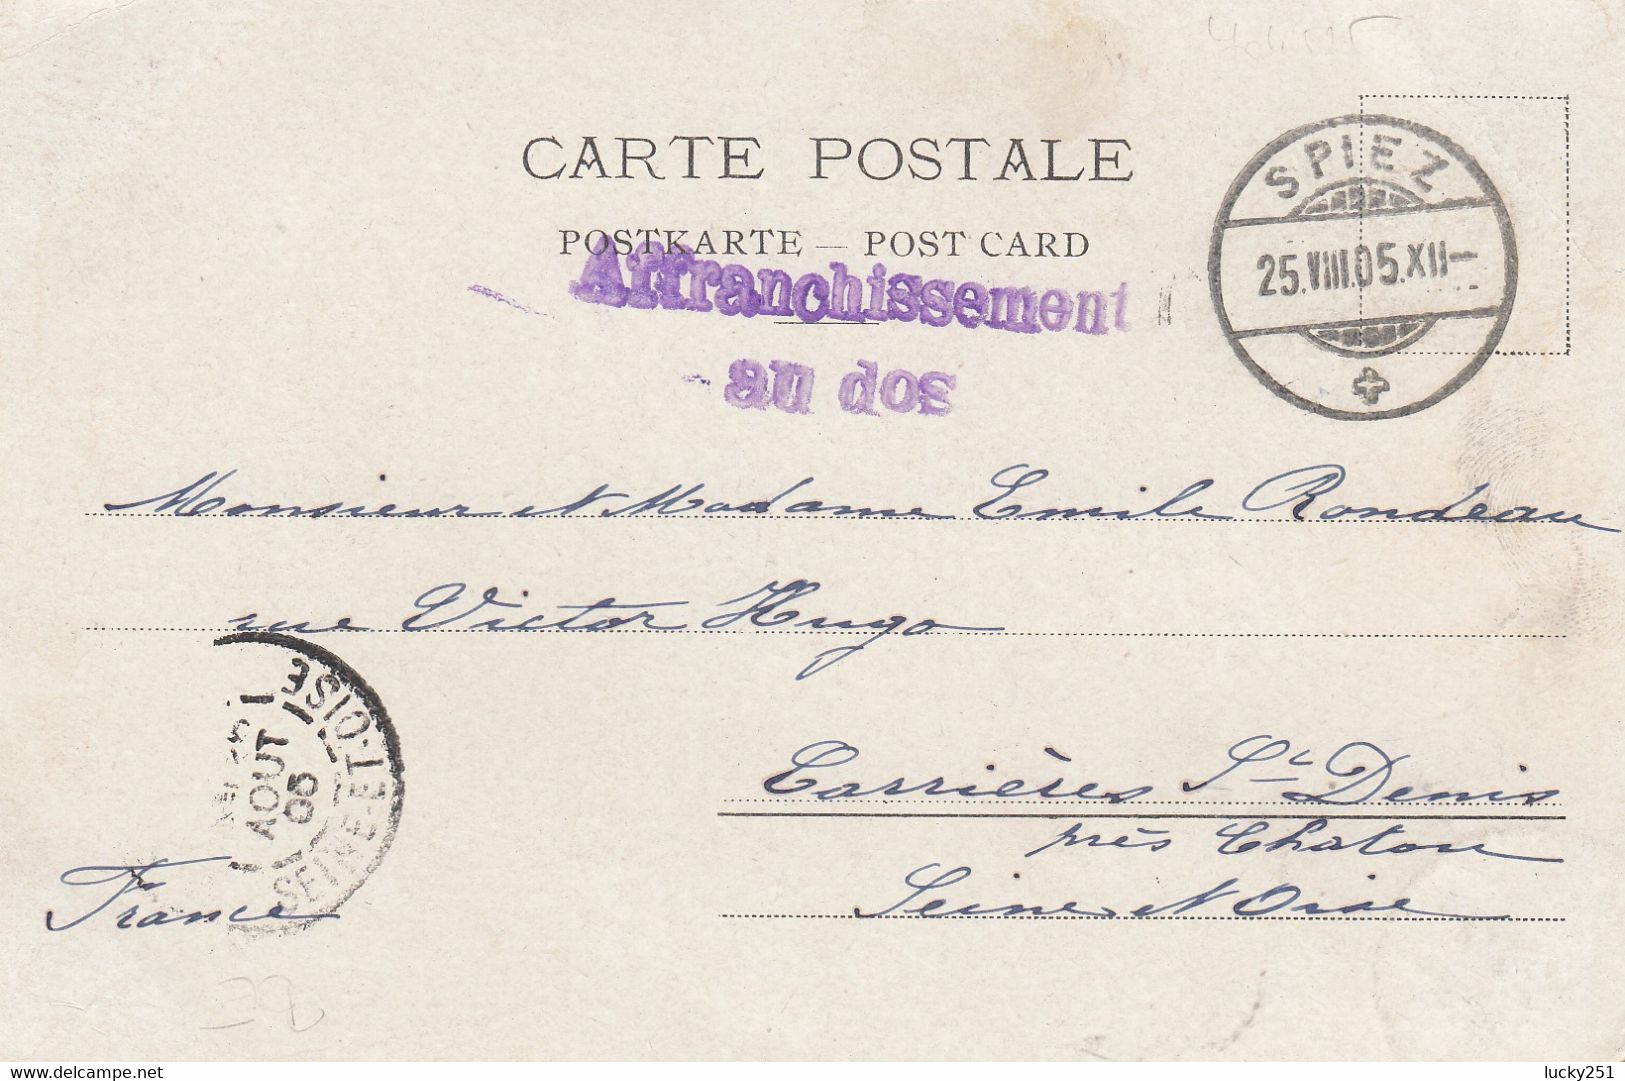 CARTE POSTALE
POSTKARTE — POST CARD
Affranchissement
au dos
SPIEZ
25.VIII.05.XII—
Monsieur et Madame Emile Rondeau
rue Victor Hugo
Carrières St Denis
près Chatou
Seine et Oise
France
AOUT
05
SEINE-ET-OISE
delcampe.net
lucky251